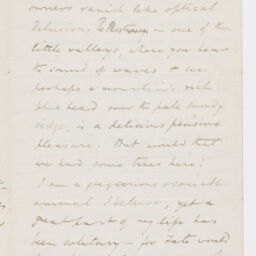 owners vanish like optical
delusions. To in one of these
little valleys, where you hear
the sound of waves & see
perhaps a mountain's rock
blue head over the pale sandy
ridge, is a delicious pensive
pleasure. But would that
we had some trees here!
I am a gregarious & sociable
animal I believe, yet a
great part of my life has
been solitary — for Fate would